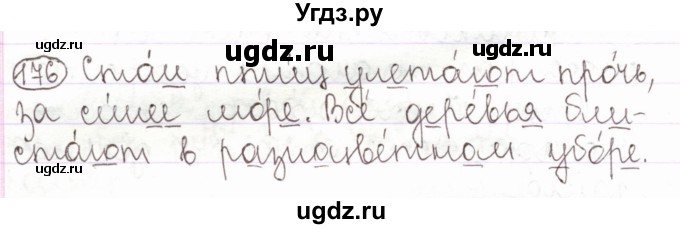 Угдз.ру
ugdz.ru
ugdz.ru
176 Ста́и пти́ц улета́ют про́чь,
за си́нее мо́ре. Все́ дере́вья бли-
ugdz.ru
ugdz.ru
ста́ют в разноцве́тном убо́ре.
ugdz.ru